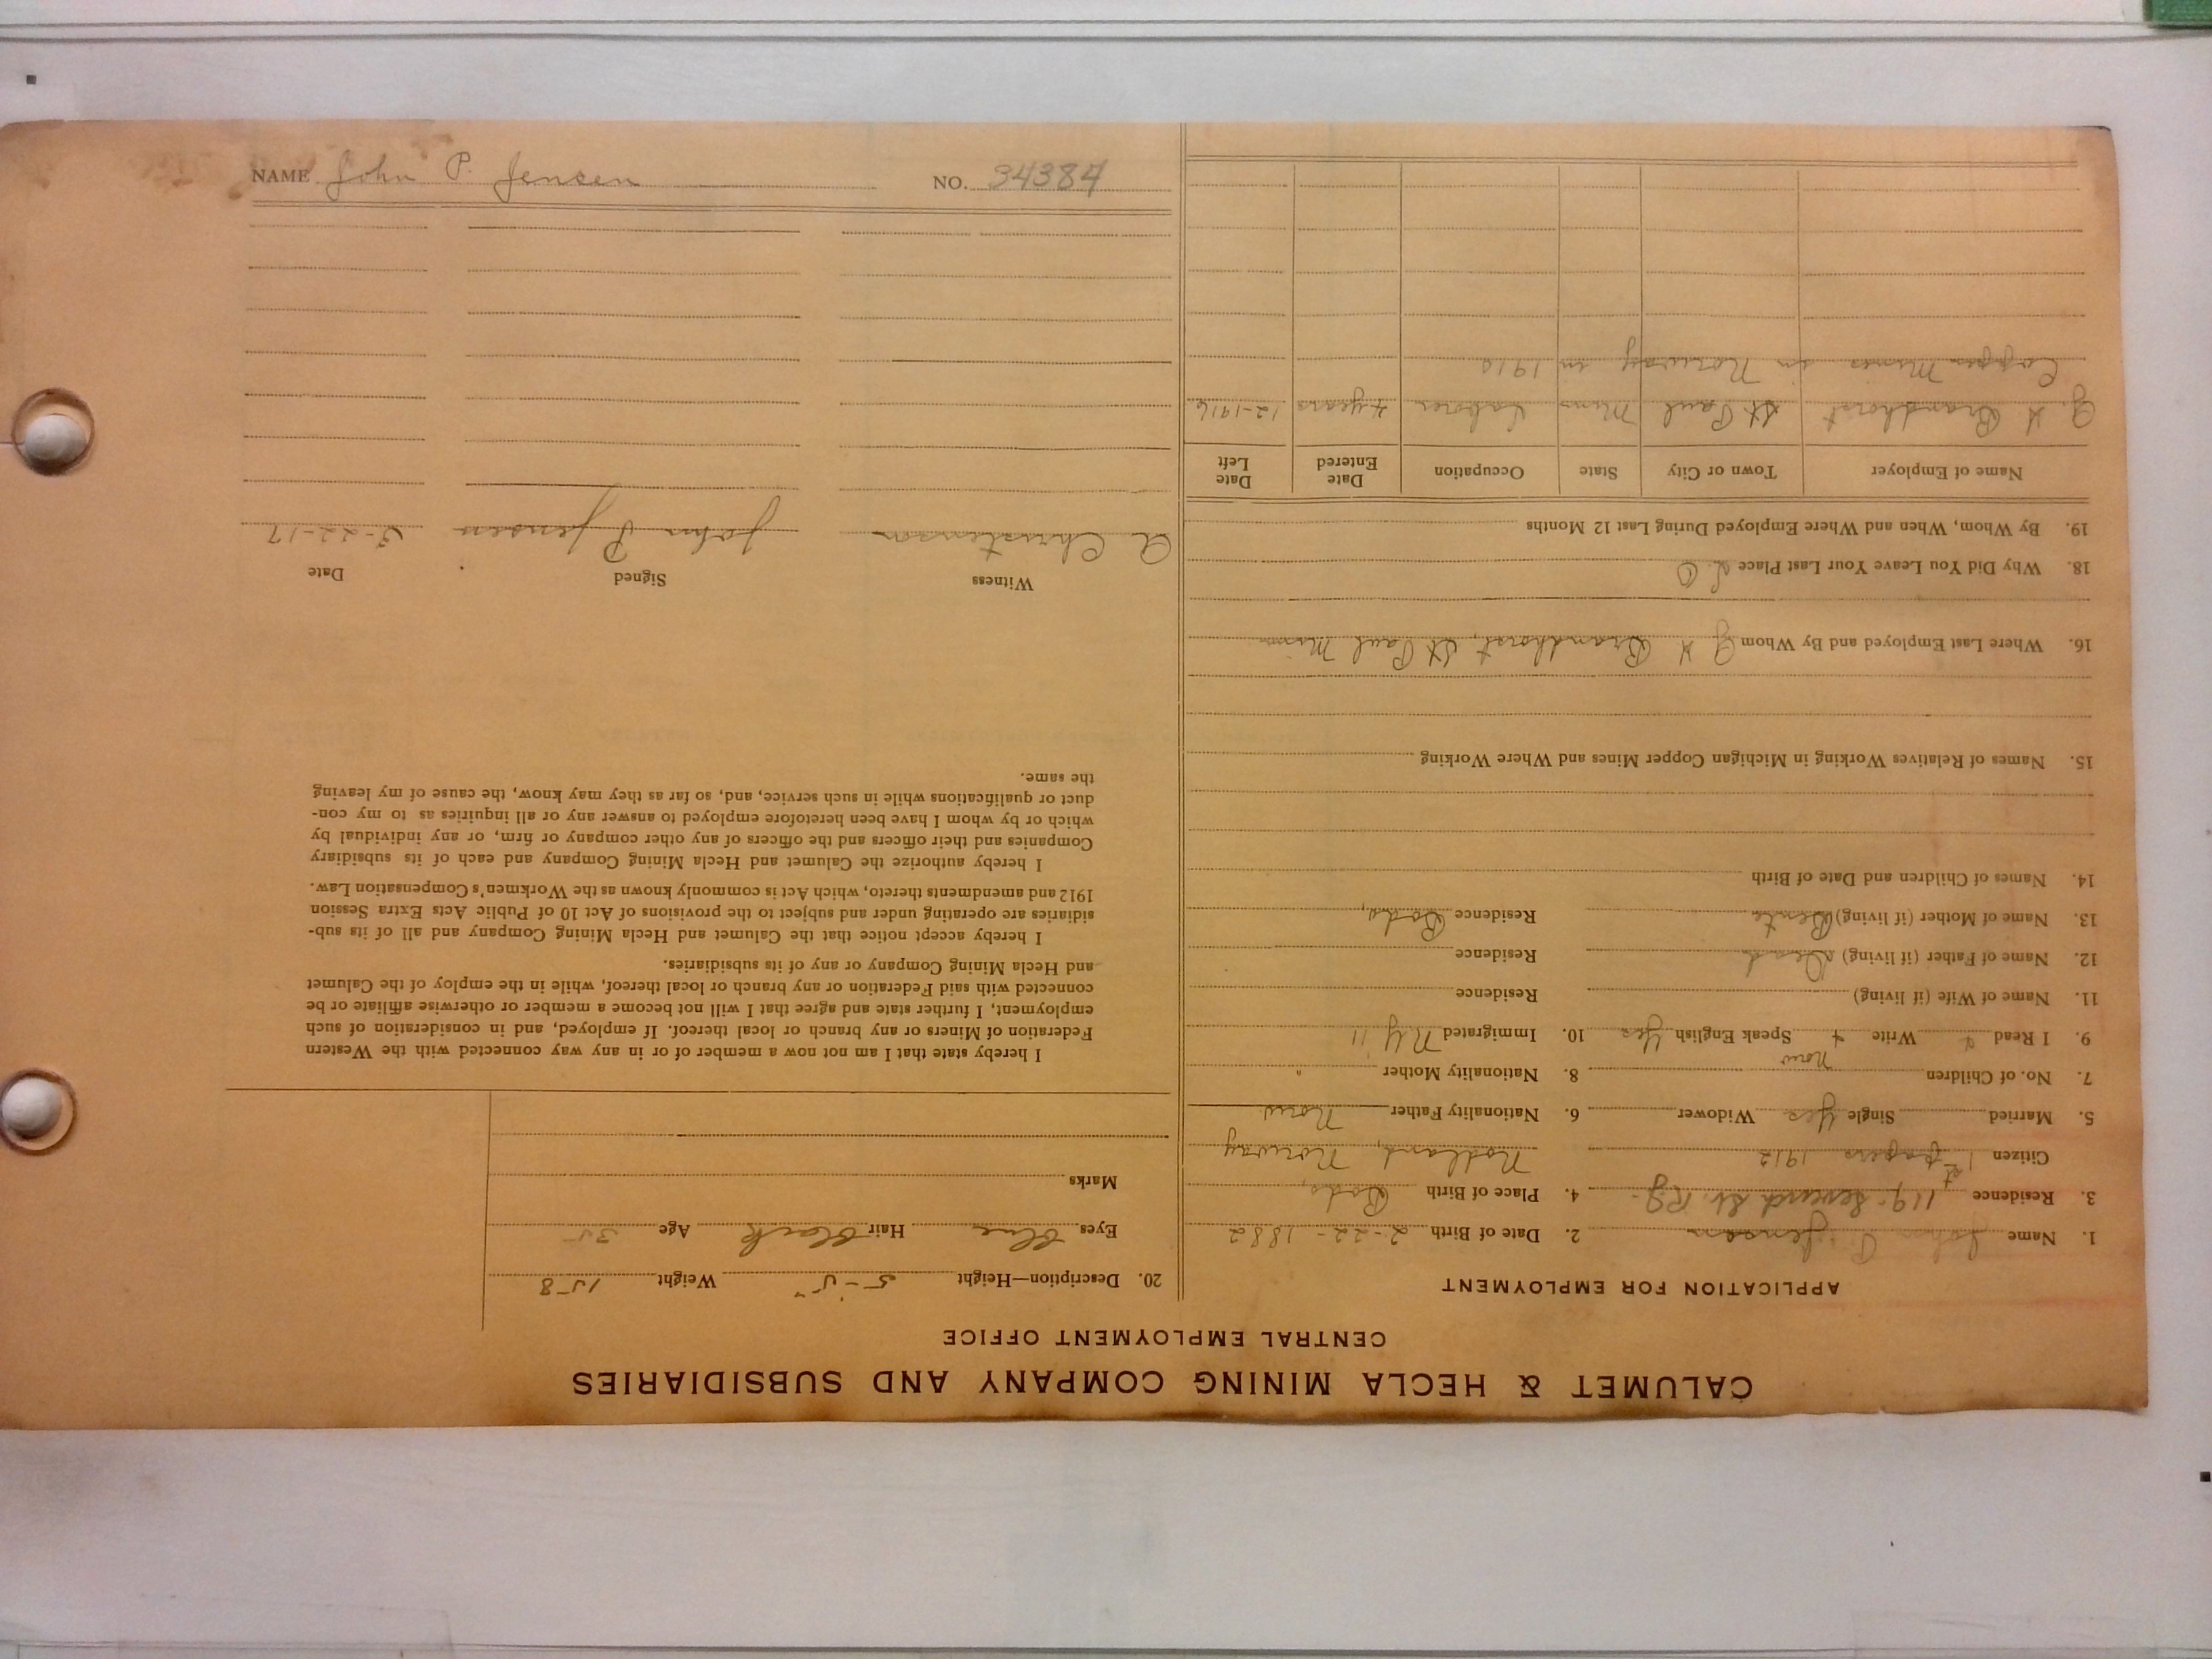 NAME John P. Jensen NO. 34384
CALUMET & HECLA MINING COMPANY AND SUBSIDIARIES
CENTRAL EMPLOYMENT OFFICE
APPLICATION FOR EMPLOYMENT
1. Name John P. Jensen 2. Date of Birth 2-22-1882
3. Residence 119 Seventh St. 4. Place of Birth Bodo,
Citizen 1st papers 1912 Nodland, Norway
5. Married Single Yes Widower 6. Nationality Father Norw
7. No. of Children none 8. Nationality Mother "
9. I Read + Write + Speak English Yes 10. Immigrated NY 11
11. Name of Wife (if living) Residence
12. Name of Father (if living) Dead Residence
13. Name of Mother (if living) Residence Bodo,
14. Names of Children and Date of Birth
15. Names of Relatives Working in Michigan Copper Mines and Where Working
16. Where Last Employed and By Whom G H Brandhorst, St Paul Minn
18. Why Did You Leave Your Last Place
19. By Whom, When and Where Employed During Last 12 Months
Name of Employer Town or City State Occupation Date Entered Date Left
G. H Brandhorst St Paul Minn Laborer 4 years 12-1916
Copper Mines in Norway in 1910
20. Description—Height 5-5" Weight 158
Eyes Blue Hair Black Age 35
Marks
I hereby state that I am not now a member of or in any way connected with the Western
Federation of Miners or any branch or local thereof. If employed, and in consideration of such
employment, I further state and agree that I will not become a member or otherwise affiliate or be
connected with said Federation or any branch or local thereof, while in the employ of the Calumet
and Hecla Mining Company or any of its subsidiaries.
I hereby accept notice that the Calumet and Hecla Mining Company and all of its sub-
sidiaries are operating under and subject to the provisions of Act 10 of Public Acts Extra Session
1912 and amendments thereto, which Act is commonly known as the Workmen's Compensation Law.
I hereby authorize the Calumet and Hecla Mining Company and each of its subsidiary
Companies and their officers and the officers of any other company or firm, or any individual by
which or by whom I have been heretofore employed to answer any or all inquiries as to my con-
duct or qualifications while in such service, and, so far as they may know, the cause of my leaving
the same.
Witness Signed Date
A Christenson John P Jensen 2-22-17